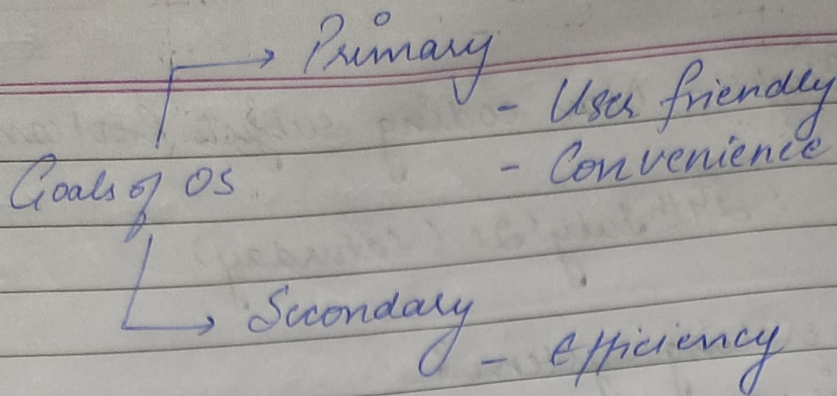 Primary
- User friendly
- Convenience
Goals of OS
Secondary
- efficiency